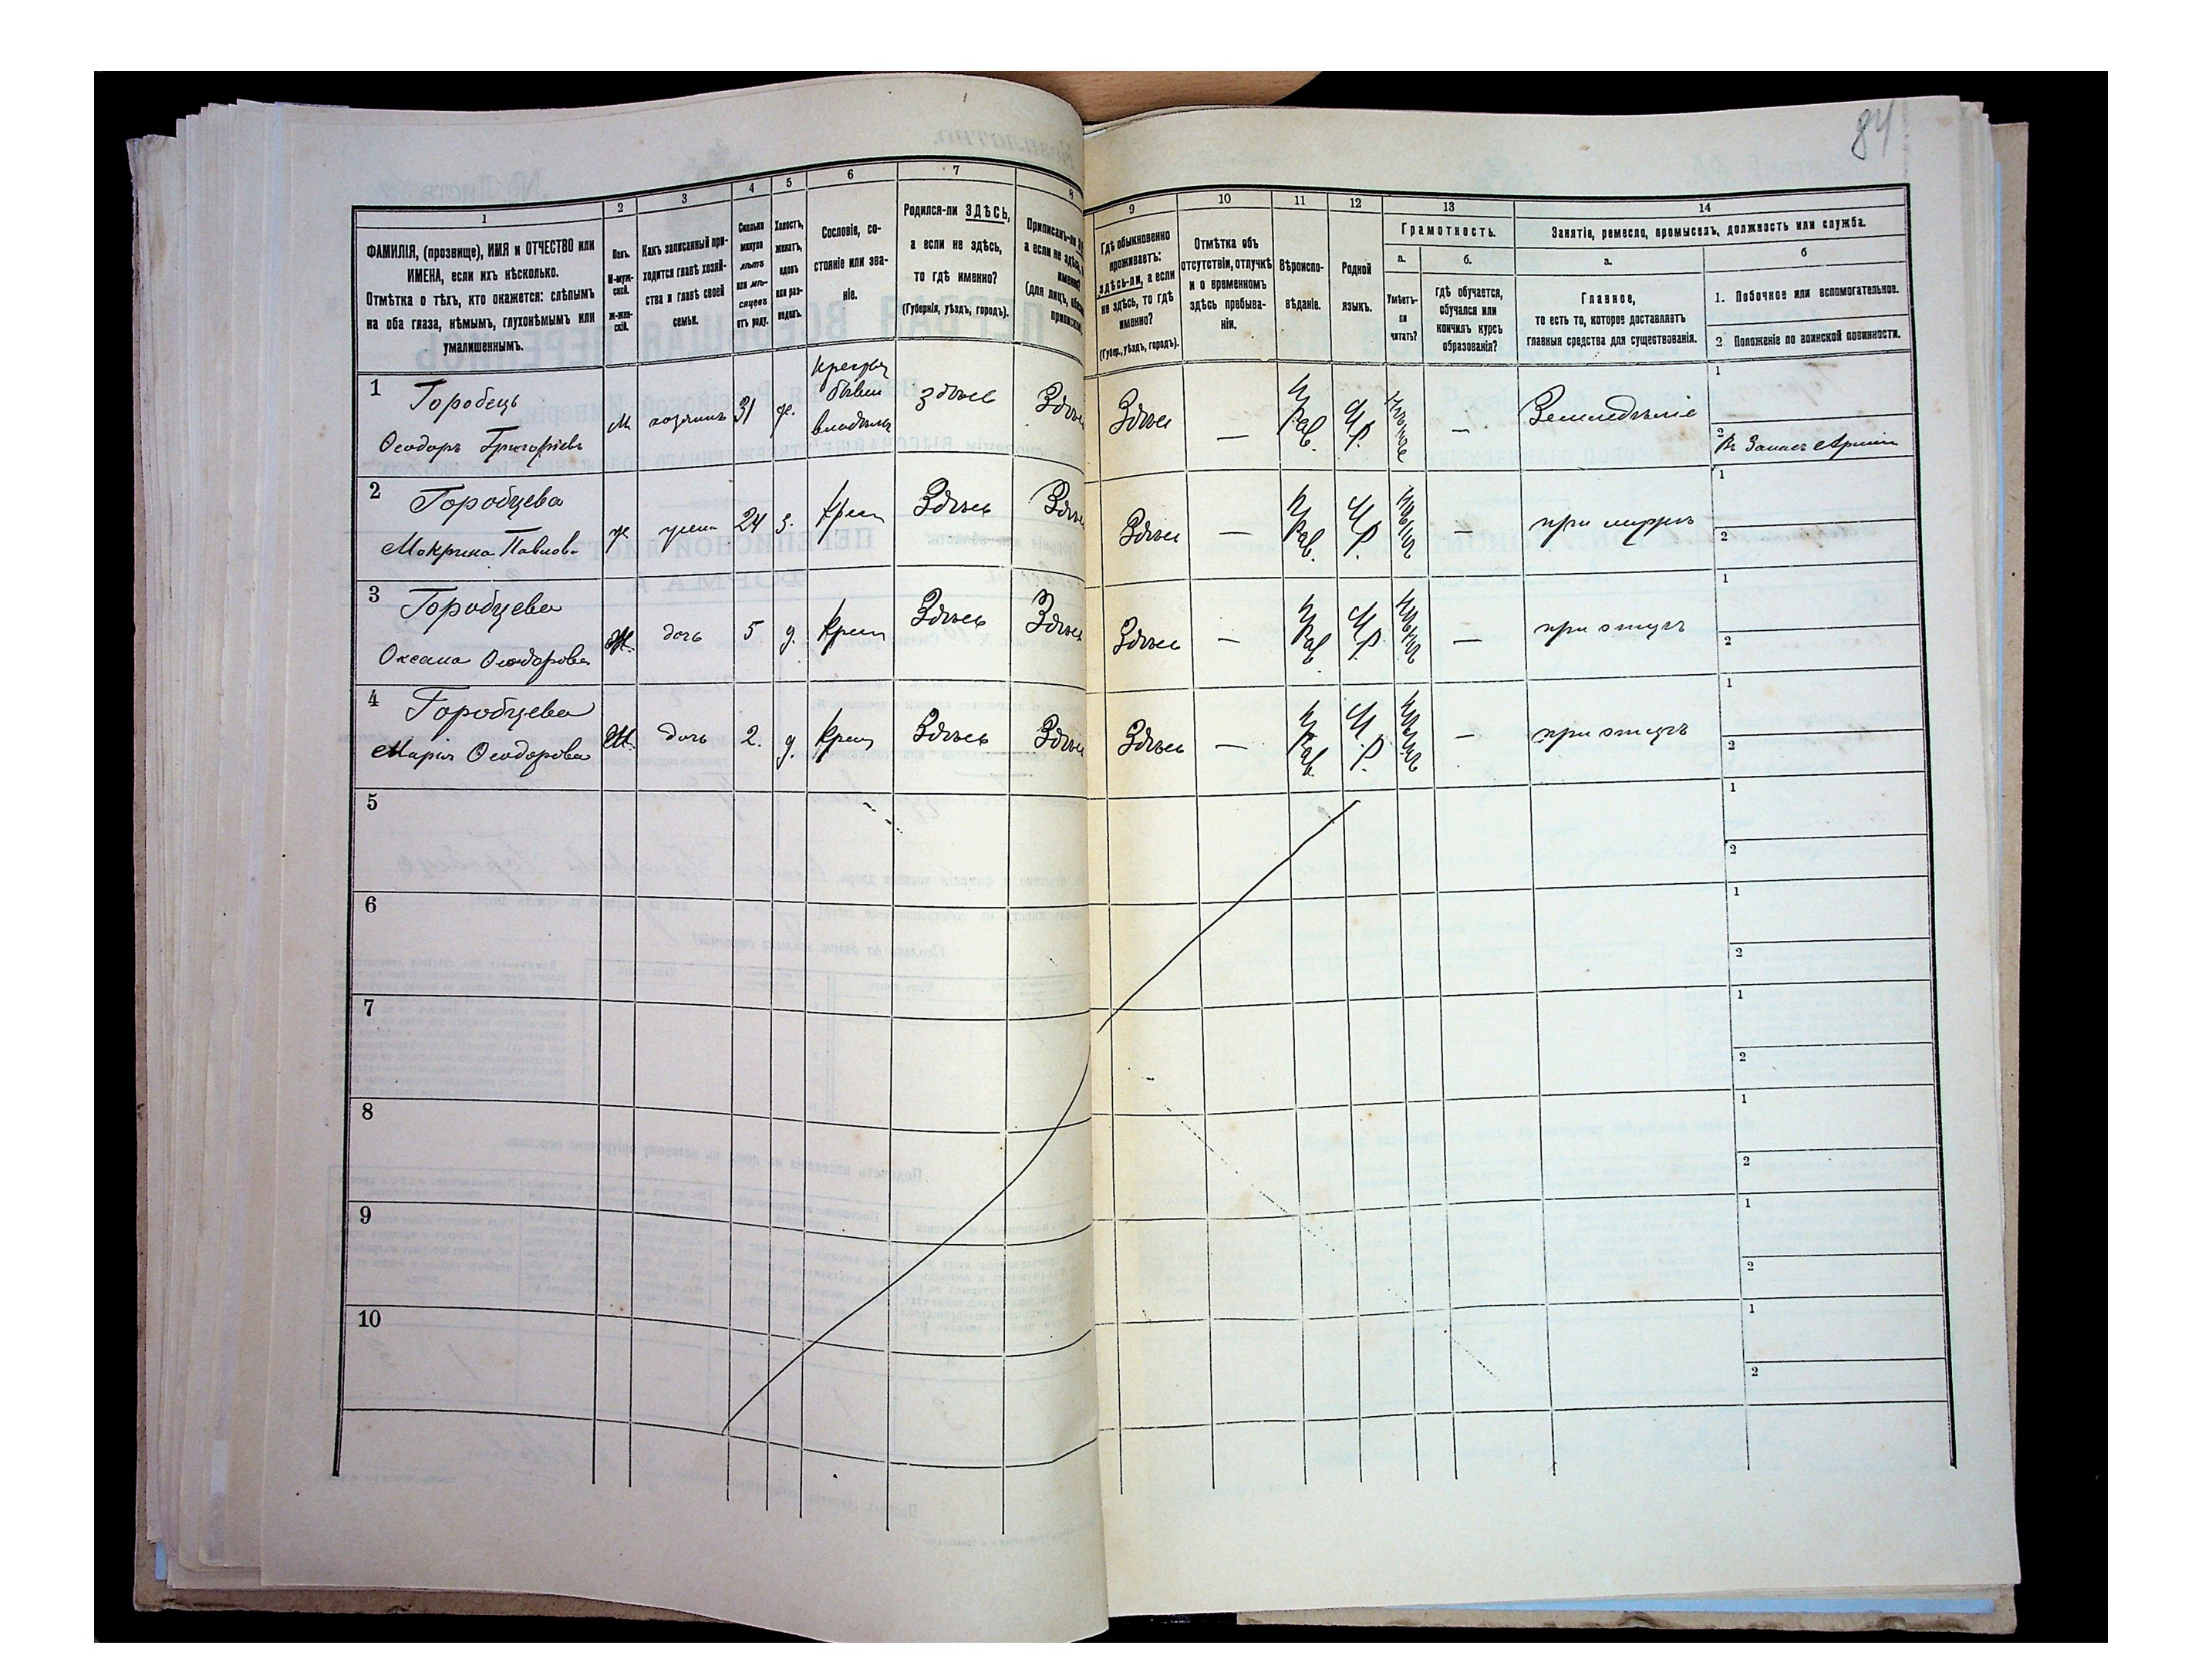 84
1
ФАМИЛІЯ, (прозвище), ИМЯ и ОТЧЕСТВО или
ИМЕНА, если ихъ нѣсколько.
Отмѣтка о тѣхъ, кто окажется: слѣпымъ
на оба глаза, нѣмымъ, глухонѣмымъ или
умалишеннымъ.
2
Полъ.
М-муж-
ской.
Ж-жен-
скій.
3
Какъ записанный при-
ходится главѣ хозяй-
ства и главѣ своей
семьи.
4
Сколько
минуло
лѣтъ
или мѣ-
сяцевъ
отъ роду.
5
Холостъ,
женатъ,
вдовъ
или раз-
веденъ.
6
Сословіе, со-
стояніе или зва-
ніе.
7
Родился-ли ЗДѢСЬ,
а если не здѣсь,
то гдѣ именно?
(Губернія, уѣздъ, городъ).
8
Приписанъ-ли
а если не здѣсь,
(для лицъ,
9
Гдѣ обыкновенно
проживаетъ:
здѣсь-ли, а если
не здѣсь, то гдѣ
именно?
(Губер., уѣздъ, городъ).
10
Отмѣтка объ
отсутствіи, отлучкѣ
и о временномъ
здѣсь пребыва-
ніи.
11
Вѣроиспо-
вѣданіе.
12
Родной
языкъ.
13
Грамотность.
а.
Умѣетъ-
ли
читать?
б.
гдѣ обучается,
обучался или
кончилъ курсъ
образованія?
14
Занятіе, ремесло, промыселъ, должность или служба.
а.
Главное,
то есть то, которое доставляетъ
главныя средства для существованія.
б
1. Побочное или вспомогательное.
2 Положеніе по воинской повинности.
1 Горобець
Ѳеодоръ Григоріевъ
М хозяинъ 31 ж.
бывш
здѣсь Здѣсь Здѣсь — Прав. — Земледѣліе
1
2 Въ Запасѣ Арміи
2 Горобцева
Макрина Павлов.
ж жена 24 з. Крест Здѣсь Здѣсь Здѣсь — Прав. — при мужѣ
1
2
3 Горобцева
Оксана Ѳеодорова
Ж. дочь 5 д. Крест Здѣсь Здѣсь Здѣсь — Прав. — при отцѣ
1
2
4 Горобцева
Марія Ѳеодорова
Ж. дочь 2. д. Крест Здѣсь Здѣсь Здѣсь — Прав. — при отцѣ
1
2
5
1
2
6
1
2
7
1
2
8
1
2
9
1
2
10
1
2